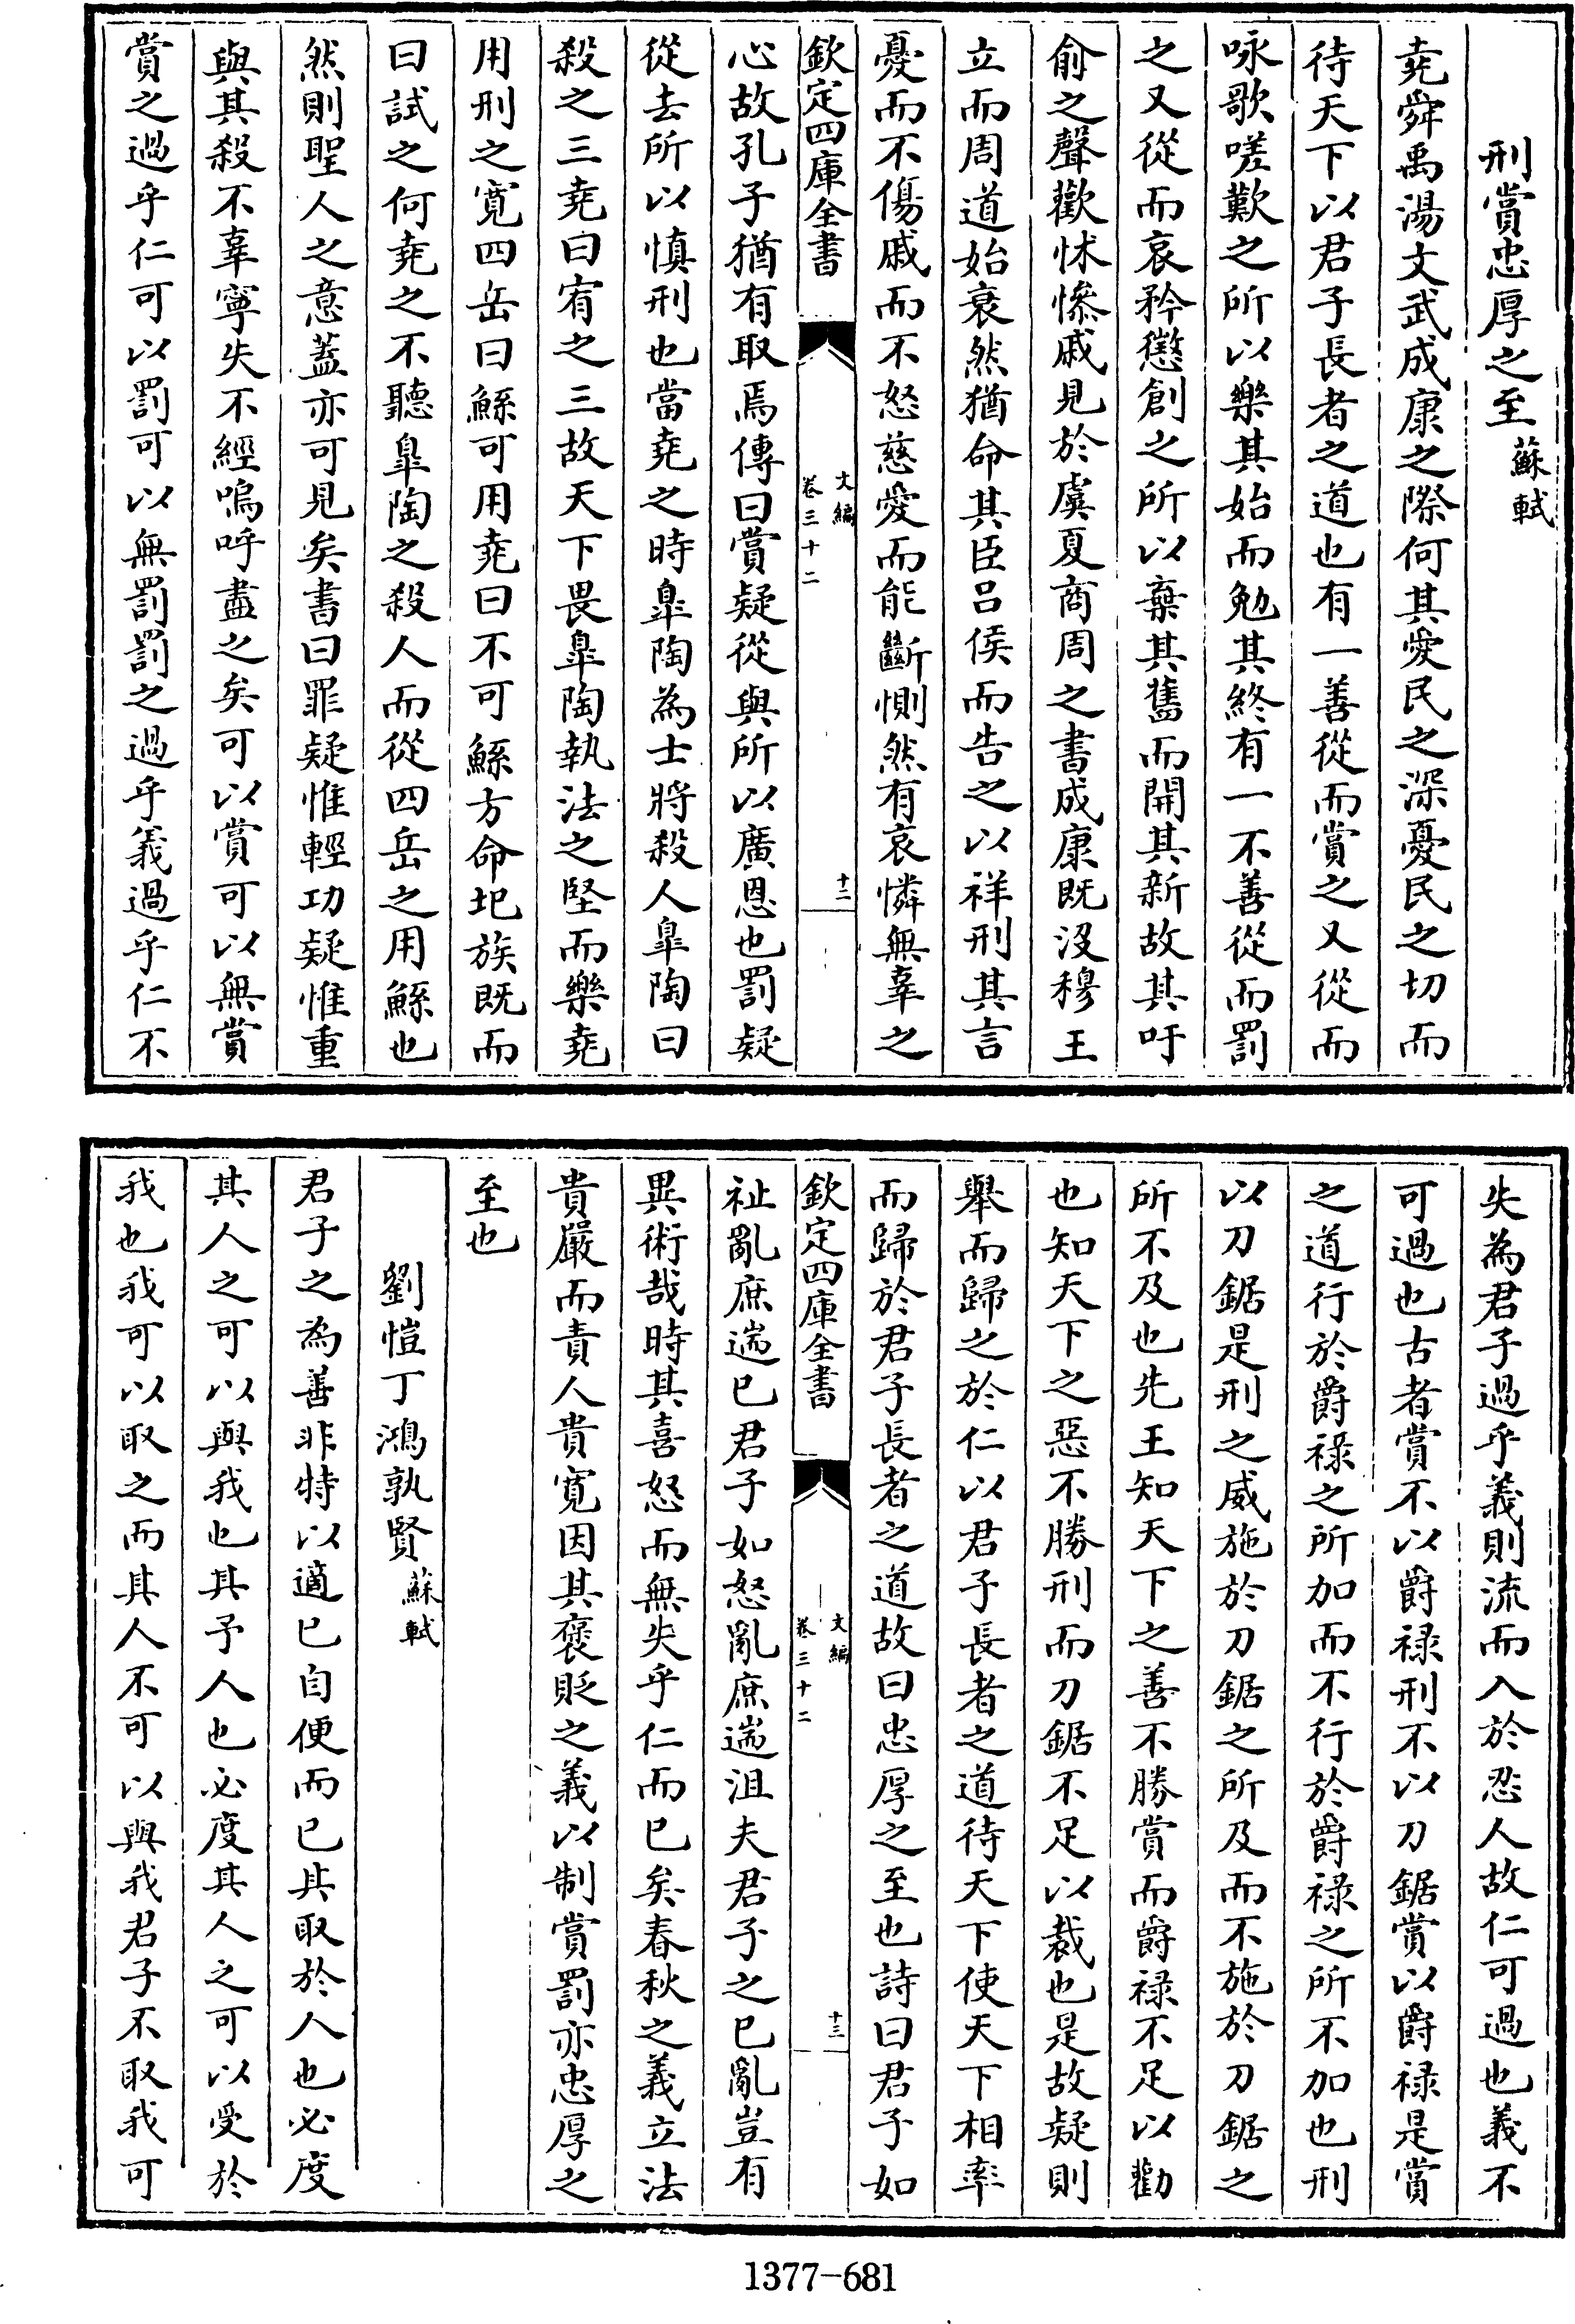 刑賞忠厚之至 蘇軾
堯舜禹湯文武成康之際何其愛民之深憂民之切而
待天下以君子長者之道也有一善從而賞之又從而
咏歌嗟歎之所以樂其始而勉其終有一不善從而罰
之又從而哀矜懲創之所以棄其舊而開其新故其吁
俞之聲歡怵慘戚見於虞夏商周之書成康既沒穆王
立而周道始衰然猶命其臣呂侯而告之以祥刑其言
憂而不傷戚而不怒慈愛而能斷惻然有哀憐無辜之
欽定四庫全書
文編
卷三十二
十二
心故孔子猶有取焉傳曰賞疑從與所以廣恩也罰疑
從去所以慎刑也當堯之時臯陶為士將殺人臯陶曰
殺之三堯曰宥之三故天下畏臯陶執法之堅而樂堯
用刑之寛四岳曰鯀可用堯曰不可鯀方命圮族既而
曰試之何堯之不聽臯陶之殺人而從四岳之用鯀也
然則聖人之意葢亦可見矣書曰罪疑惟輕功疑惟重
與其殺不辜寧失不經嗚呼盡之矣可以賞可以無賞
賞之過乎仁可以罰可以無罰罰之過乎義過乎仁不
失為君子過乎義則流而入於忍人故仁可過也義不
可過也古者賞不以爵禄刑不以刀鋸賞以爵禄是賞
之道行於爵禄之所加而不行於爵禄之所不加也刑
以刀鋸是刑之威施於刀鋸之所及而不施於刀鋸之
所不及也先王知天下之善不勝賞而爵禄不足以勸
也知天下之惡不勝刑而刀鋸不足以裁也是故疑則
舉而歸之於仁以君子長者之道待天下使天下相率
而歸於君子長者之道故曰忠厚之至也詩曰君子如
欽定四庫全書
文編
卷三十二
十三
祉亂庶遄已君子如怒亂庶遄沮夫君子之已亂豈有
異術哉時其喜怒而無失乎仁而已矣春秋之義立法
貴嚴而責人貴寛因其褒貶之義以制賞罰亦忠厚之
至也
劉愷丁鴻孰賢 蘇軾
君子之為善非特以適已自便而已其取於人也必度
其人之可以與我也其予人也必度其人之可以受於
我也我可以取之而其人不可以與我君子不取我可
1377-681